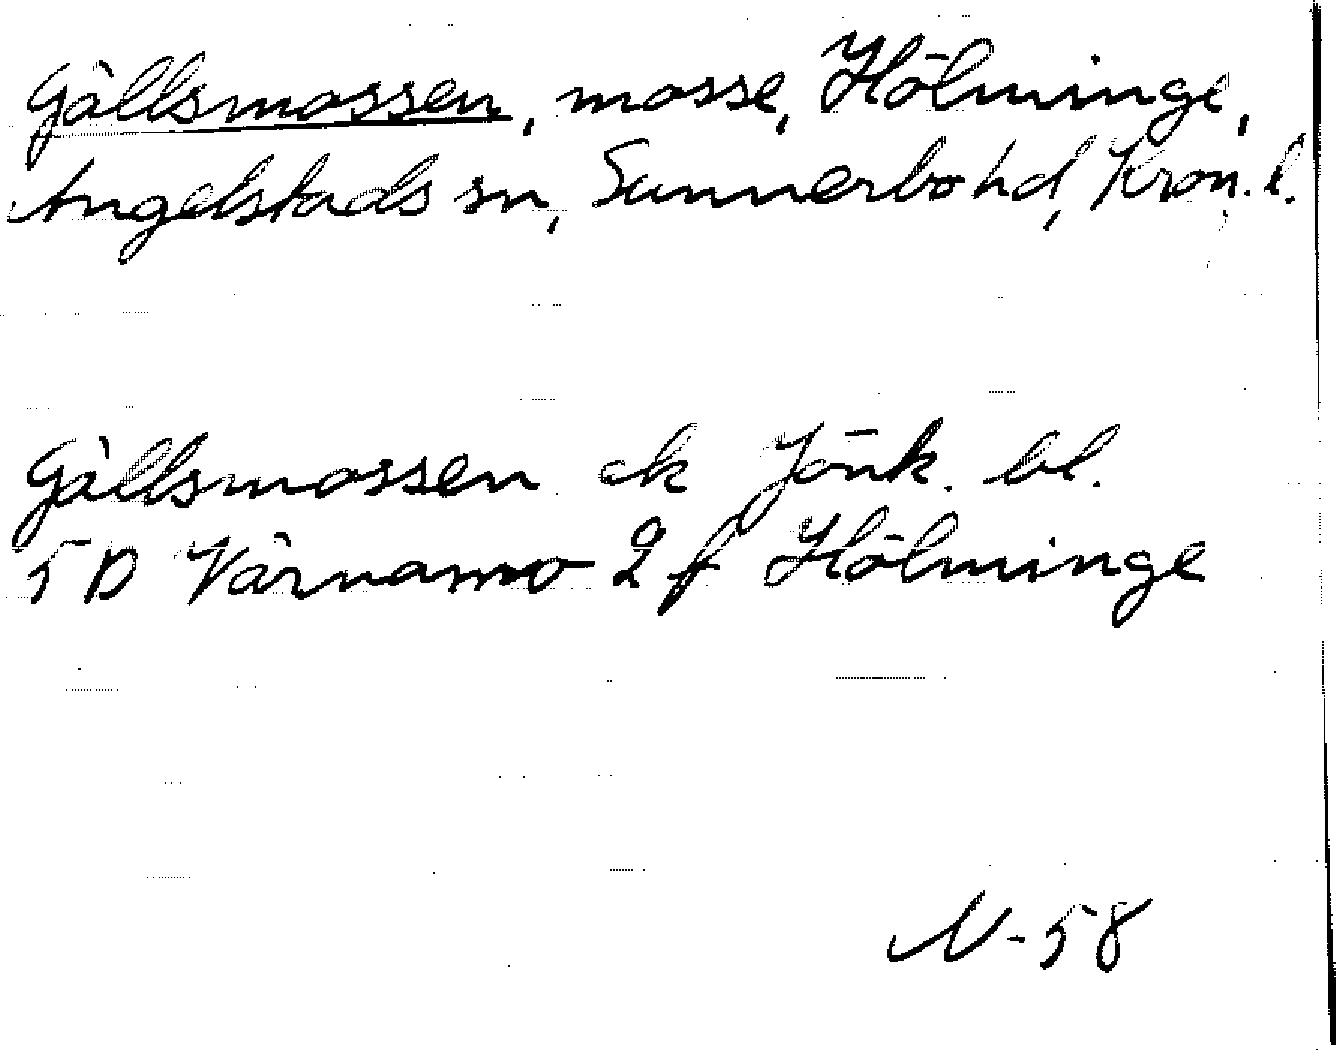 Gällsmossen, mosse, Hölminge,
Angelstads sn, Sunnerbo hd, Kron. l.
Gällsmossen ek Jönk. bl.
5D Värnamo 2 f Hölminge
N-58